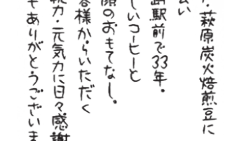 、萩原炭火焙煎豆に
い
駅前で33年。
しいコーヒーと
顔のおもてなし。
客様からいただく
力・元気力に日々感謝
もありがとうございま